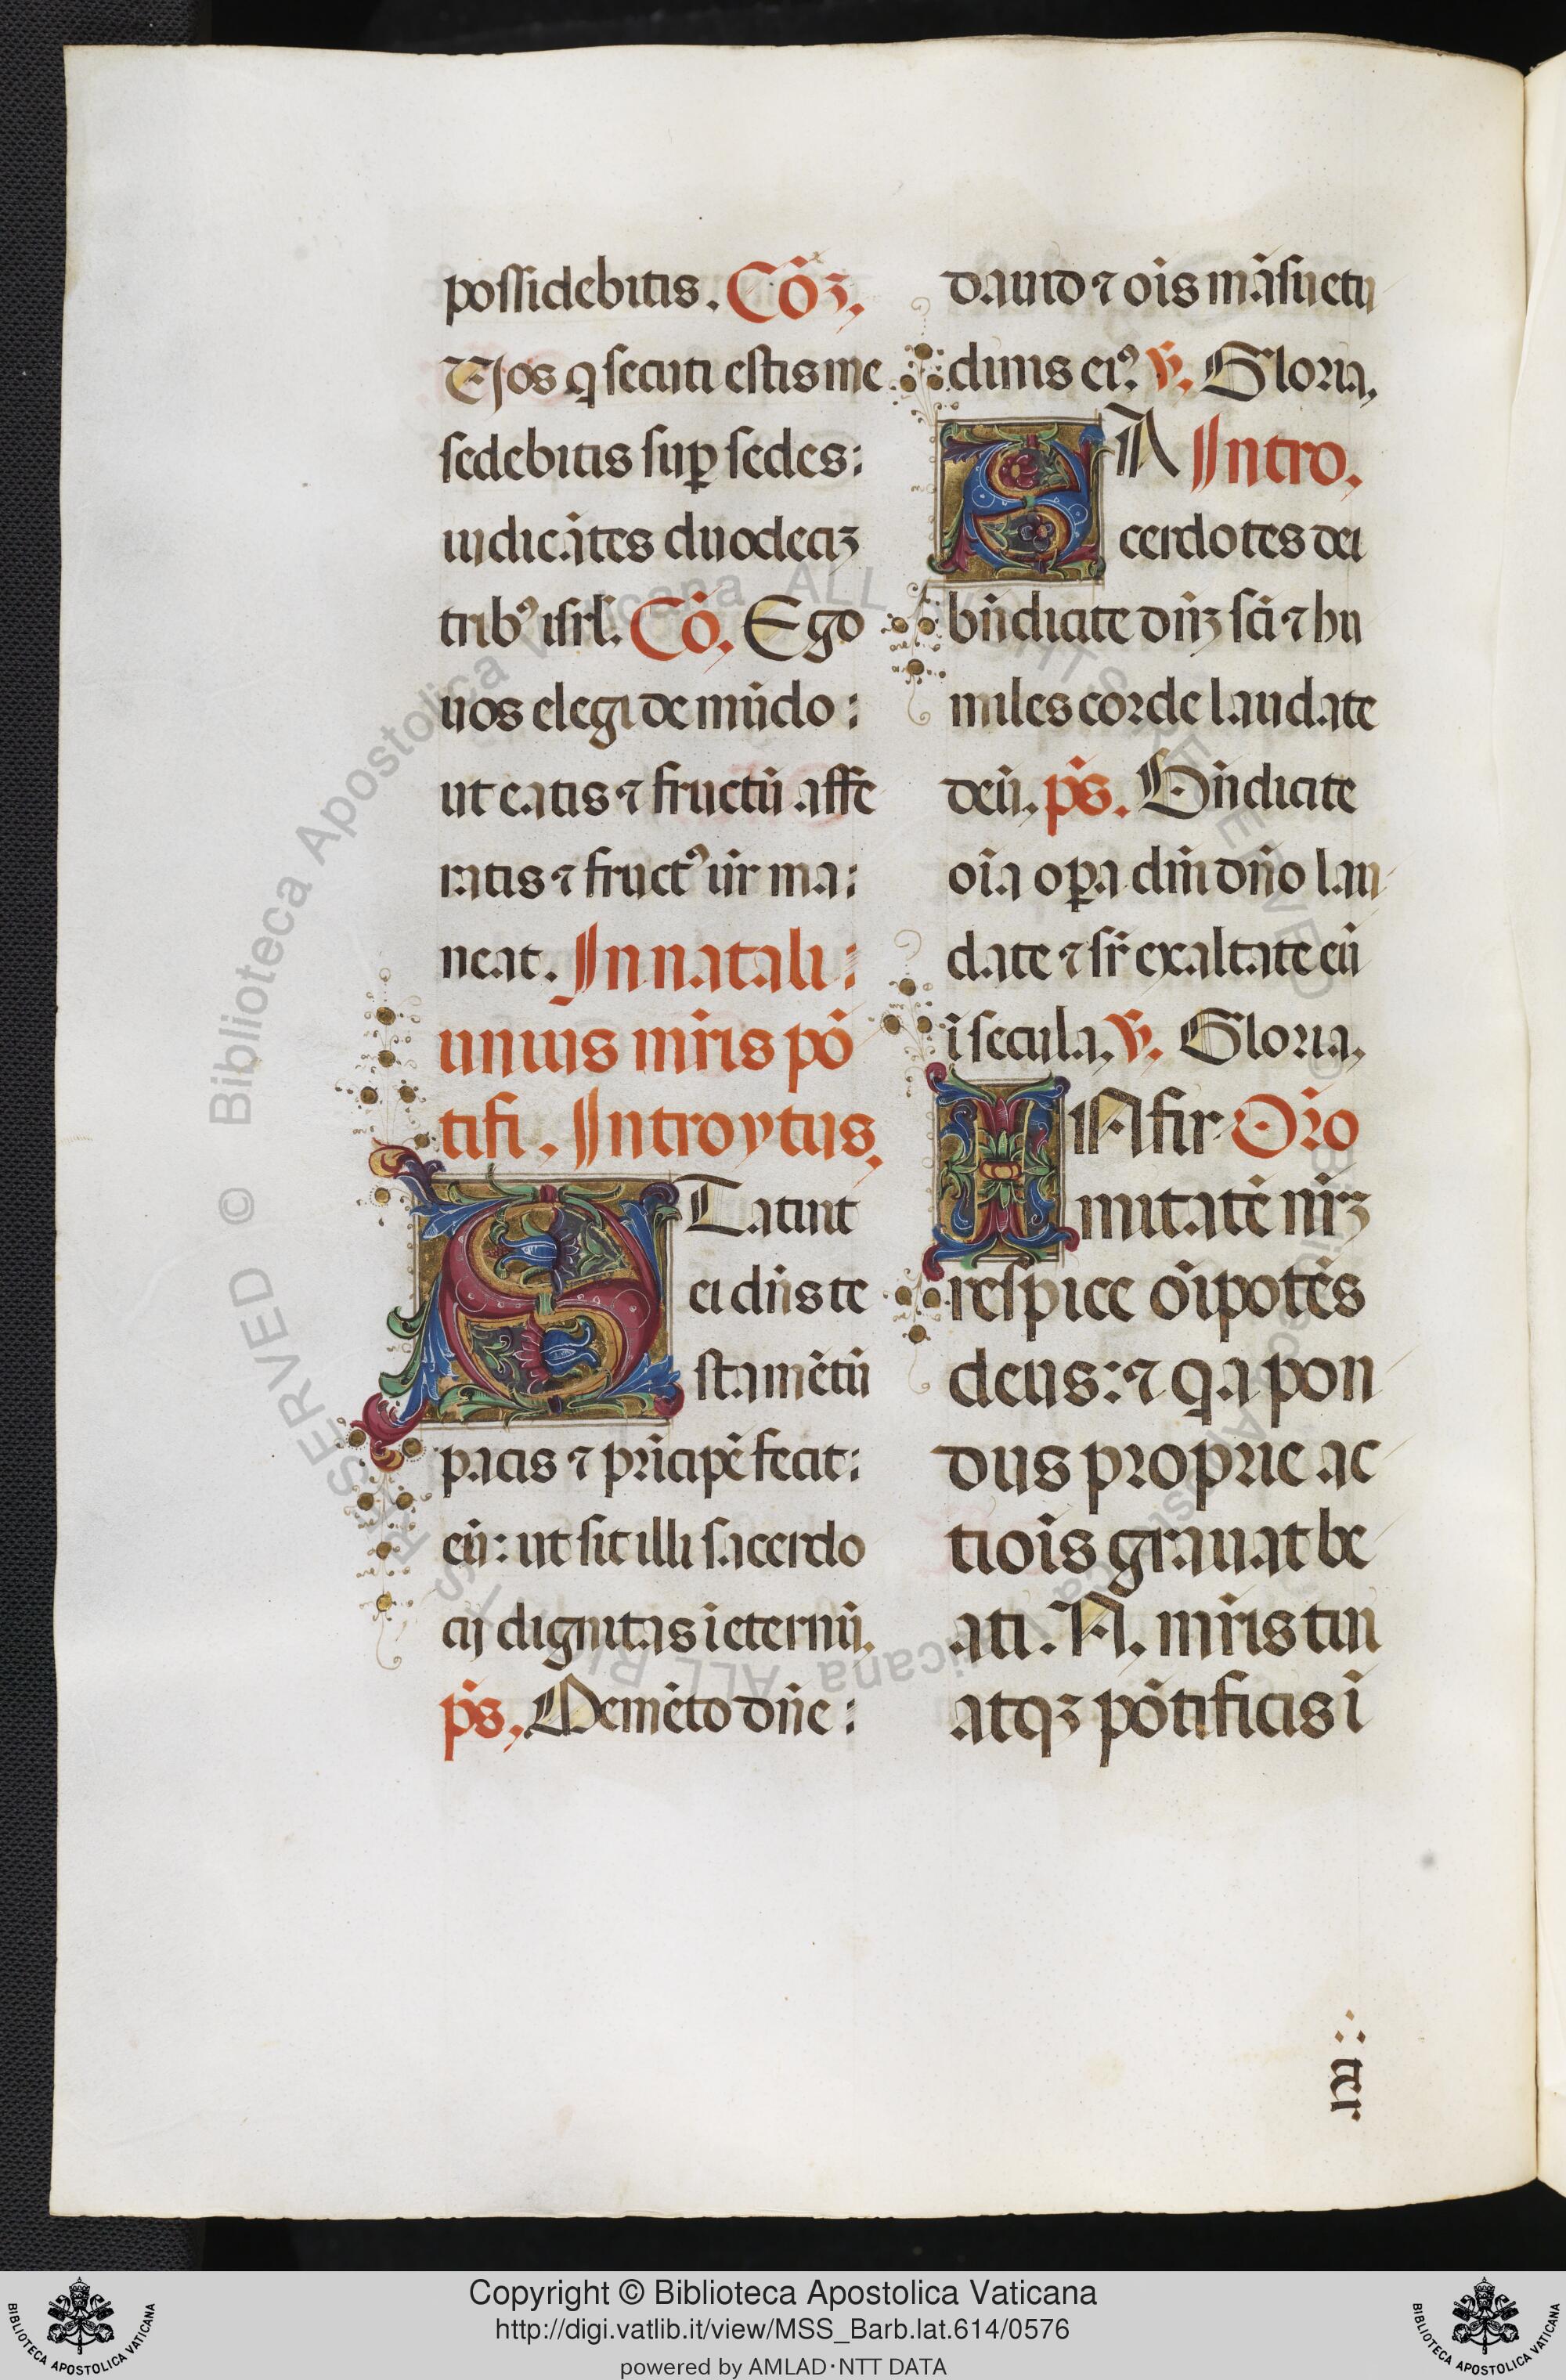 possidebitis. Cōꝫ.
Vos q̄ secuti estis me
sedebitis suꝑ sedes:
iudicātes duodeciꝫ
tribꝰ isrl̄. Cō. Ego
uos elegi de mūdo:
ut eatis ⁊ fructū affe
ratis ⁊ fructꝰ ur̄ ma:
neat. In natali:
unius mr̄is pō
tifi. Introytus.
STatuit
ei dn̄s te
stamētū
pacis ⁊ prīcipē fecit:
eū: ut sit illi sacerdo
cij dignitas ī eternū.
ps̄. Memēto dn̄e:
dauid ⁊ ōis māsuetu
dinis eiꝰ. V̄. Gloria.
SA Intro.
cerdotes dei
bn̄dicite dn̄ꝫ sc̄i ⁊ hu
miles corde laudate
deū. ps̄. Bn̄dicite
oīa oꝑa dn̄i dn̄o lau
date ⁊ sr̄ exaltate eū
ī secula. V̄. Gloria.
INfir Or̄o
mitatē nr̄ꝫ
respice ōipotēs
deus: ⁊ qa pon
dus proprie ac
tiōis grauat be
ati. N. mr̄is tui
atqꝫ pōtificis ī
Copyright © Biblioteca Apostolica Vaticana
http://digi.vatlib.it/view/MSS_Barb.lat.614/0576
powered by AMLAD·NTT DATA
BIBLIOTECA APOSTOLICA VATICANA
BIBLIOTECA APOSTOLICA VATICANA